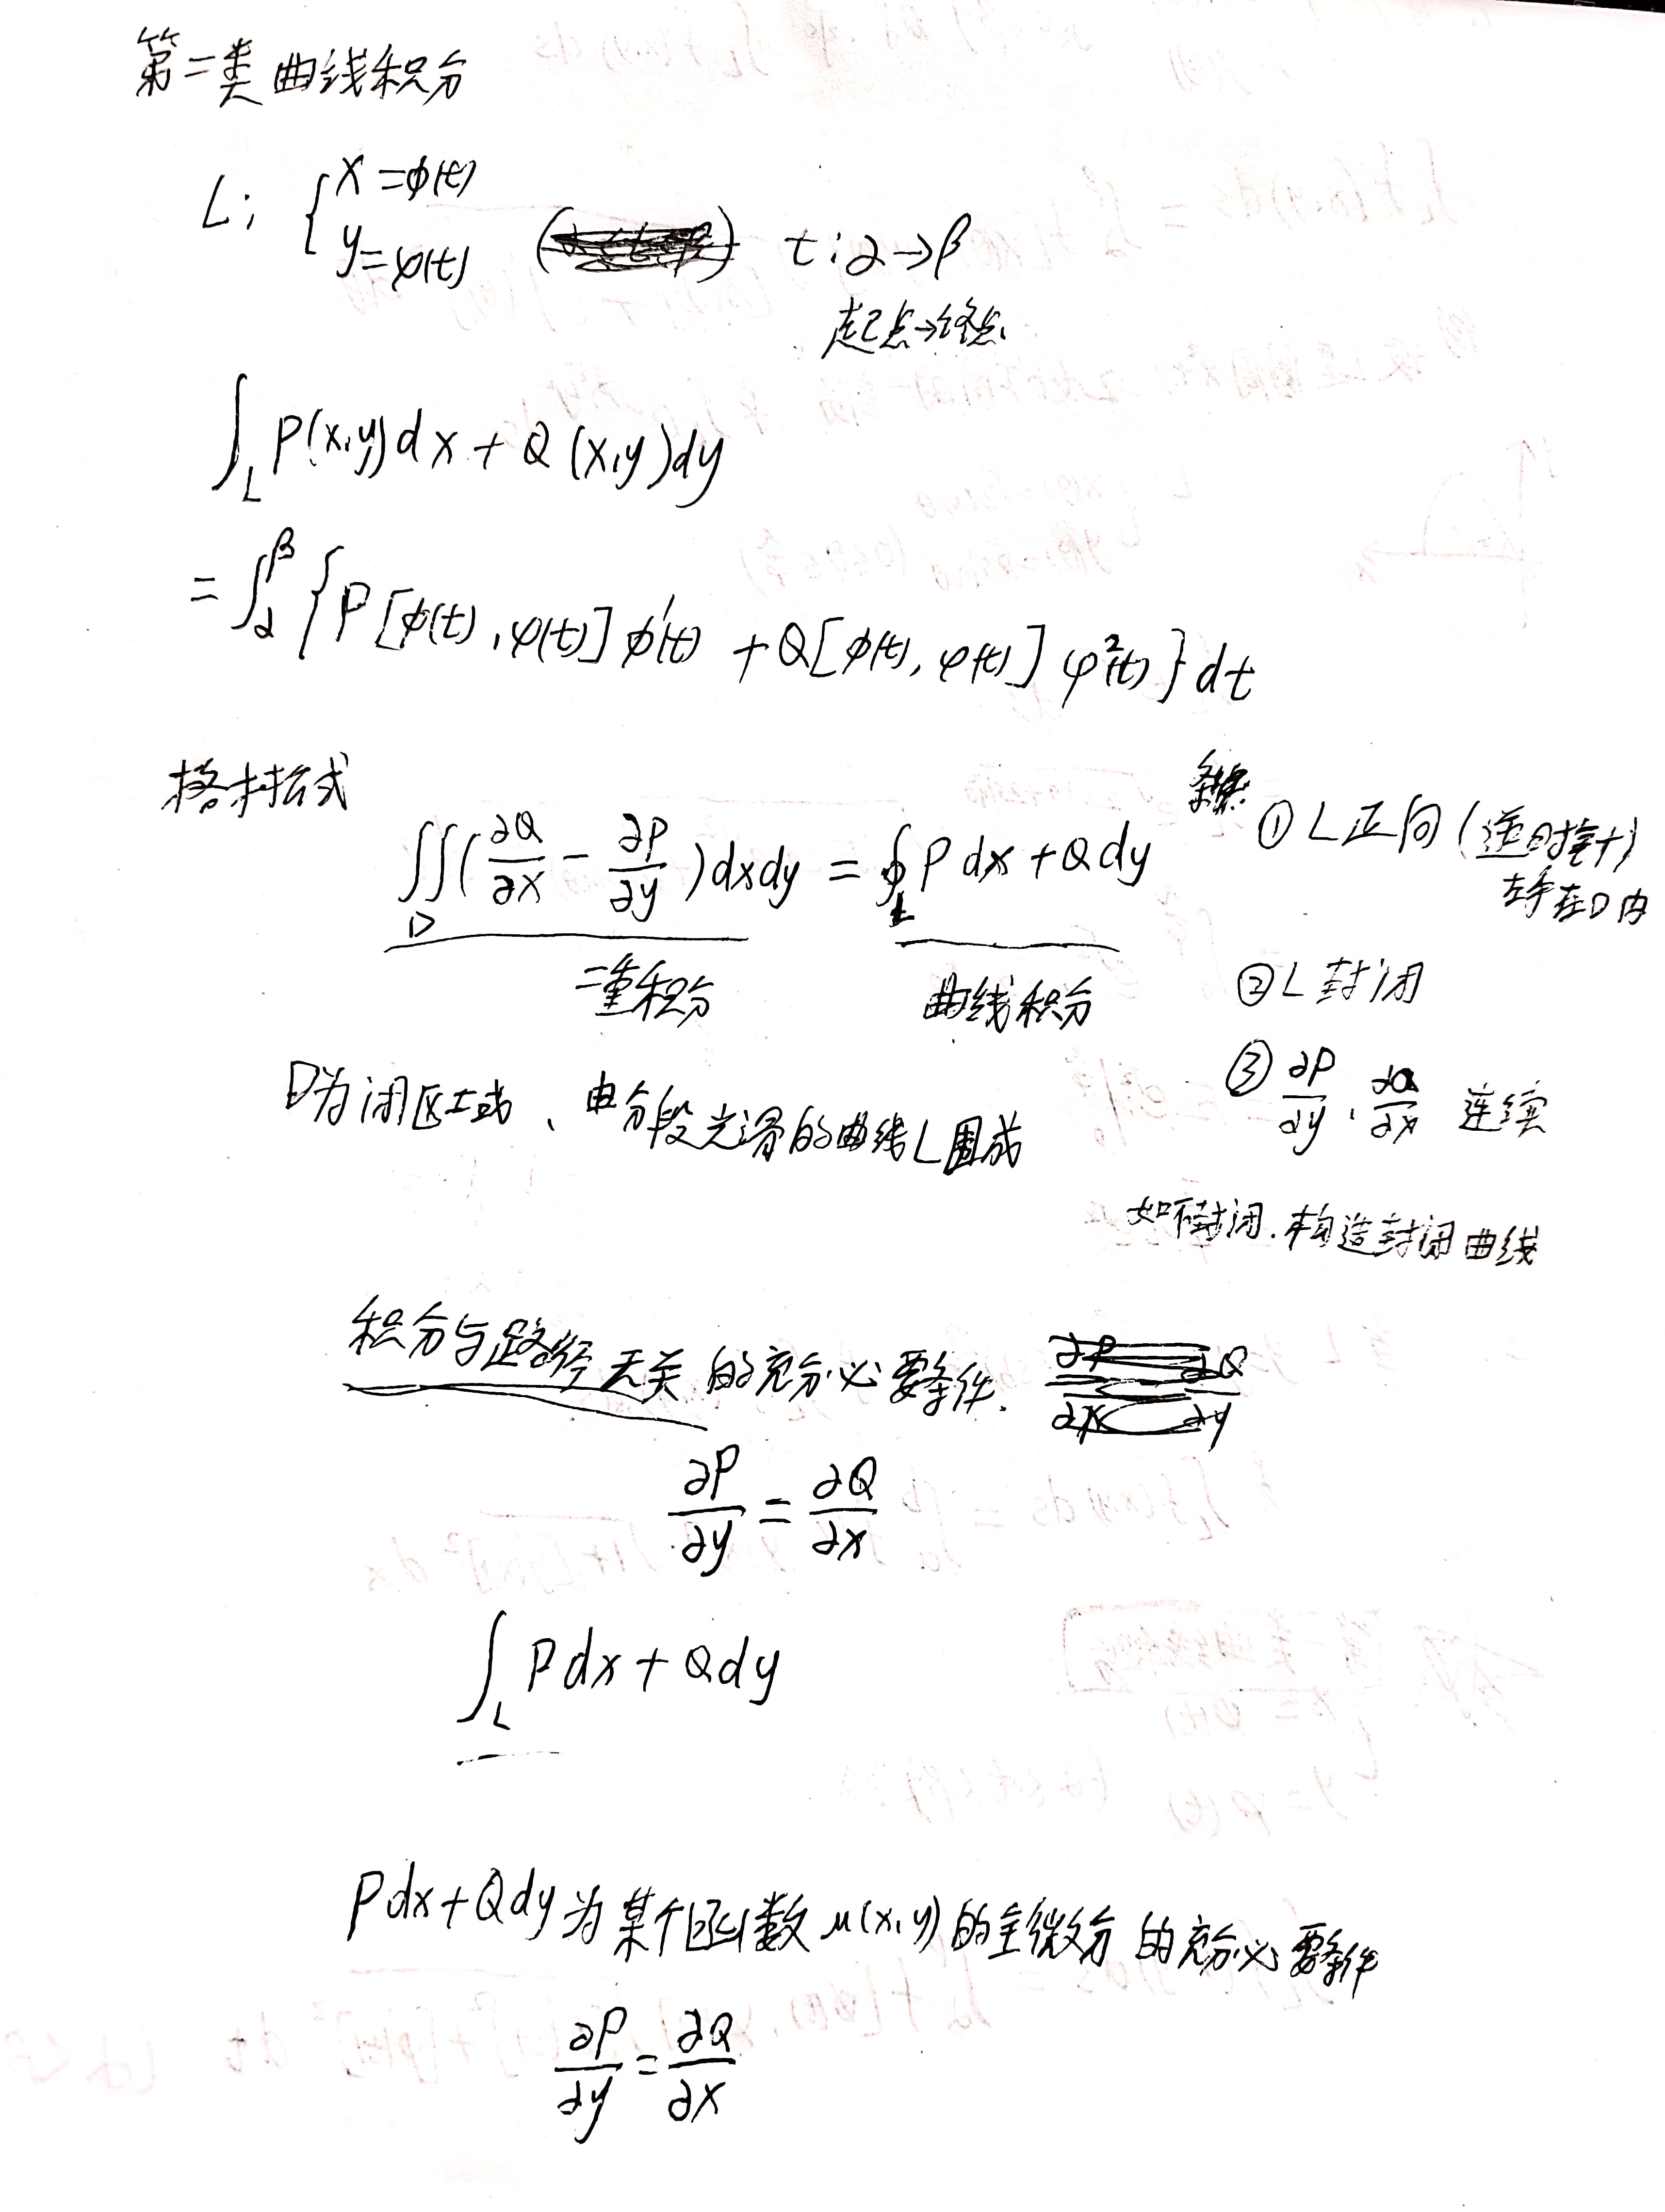 第二类曲线积分
L: { x=ϕ(t)
y=φ(t) t:α→β
起点→终点
∫_L P(x,y)dx + Q(x,y)dy
= ∫_α^β {P[ϕ(t),φ(t)]ϕ'(t) + Q[ϕ(t),φ(t)]φ²(t)}dt
格林公式
∬_D (∂Q/∂x - ∂P/∂y)dxdy = ∮_L Pdx + Qdy ①L正向(逆时针)
左手在D内
二重积分 曲线积分 ②L封闭
D为闭区域、由分段光滑的曲线L围成 ③ ∂P/∂y、∂Q/∂x 连续
如不封闭.构造封闭曲线
积分与路径无关的充分必要条件.
∂P/∂y = ∂Q/∂x
∫_L Pdx + Qdy
Pdx+Qdy为某个函数u(x,y)的全微分的充分必要条件
∂P/∂y = ∂Q/∂x